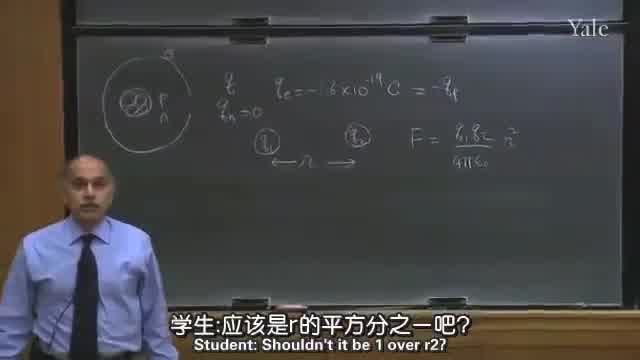 Yale
q qe = -1.6 × 10^-19 C = -qp
qn = 0
P
n
q1 q2 F = q1 q2 / 4πε0 r²
← r →
学生:应该是r的平方分之一吧?
Student: Shouldn't it be 1 over r2?